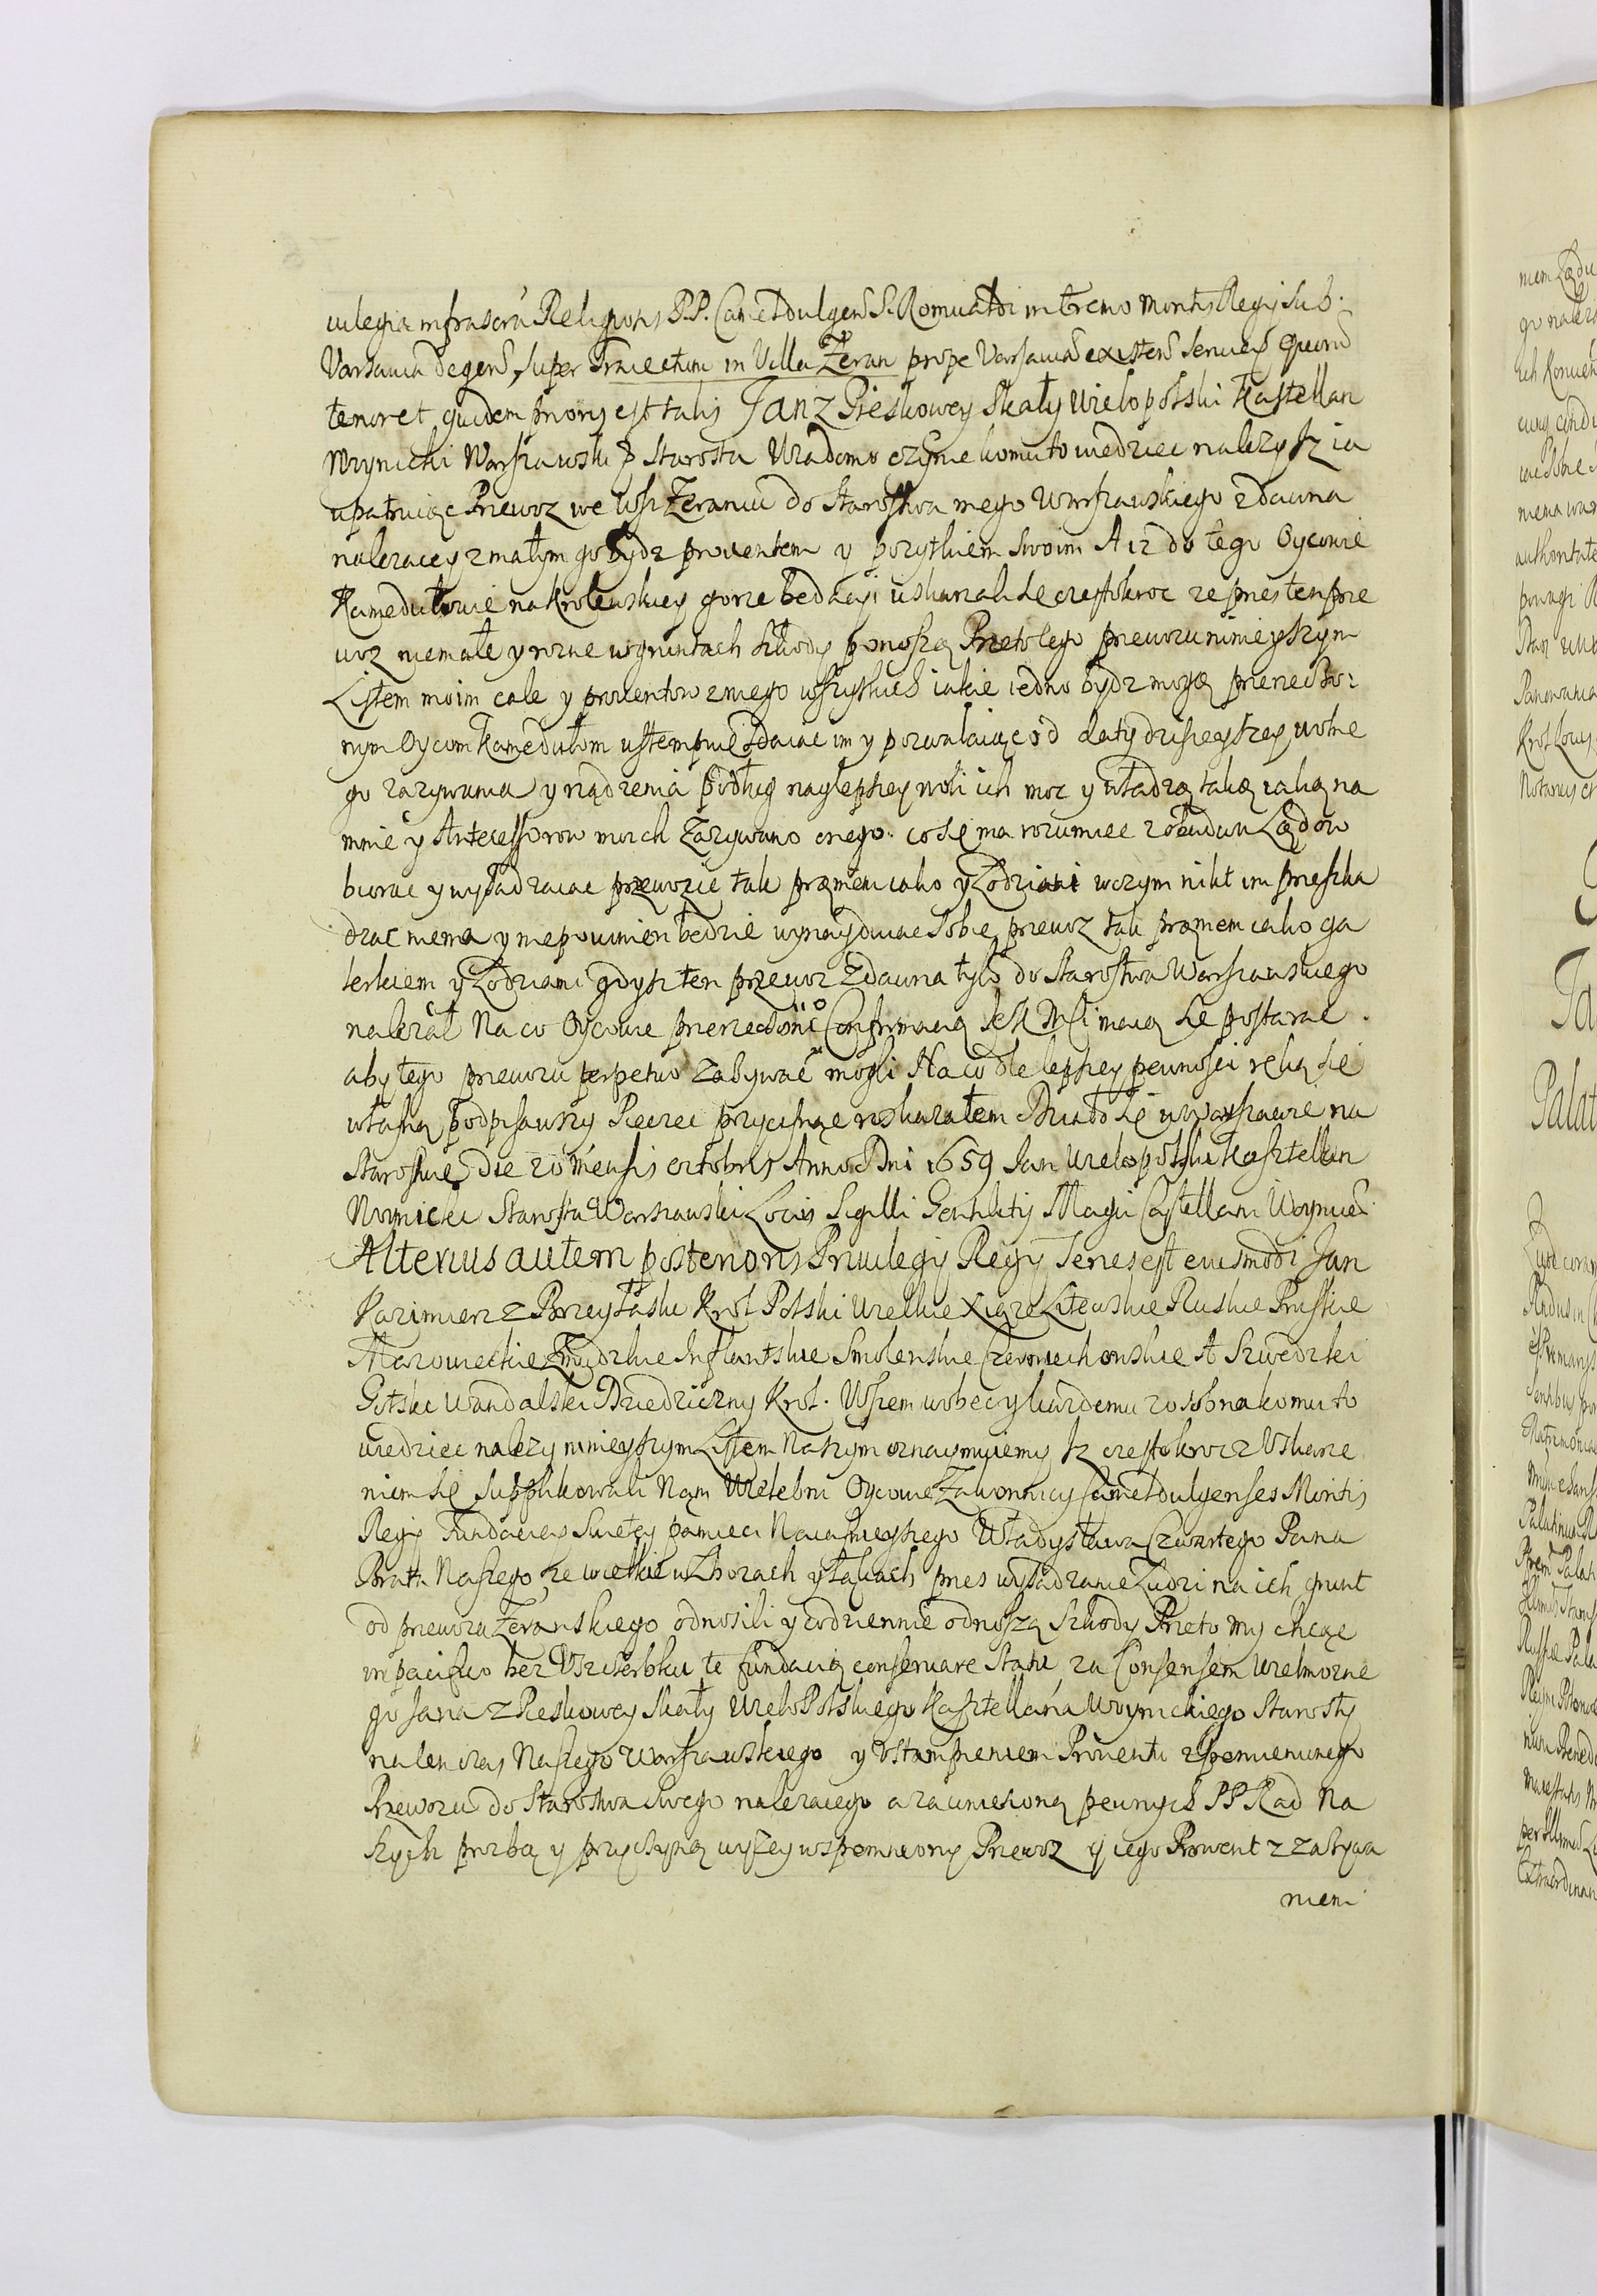 uilegia infrascrã Religionis P.P. Camaldulgens S. Romualdi in Eremo Montis Regij Sub
Varsauia degens, super Traiectum in Villa Zeran prope Varsauiã existens seruiens quorũ
tenor et quidem prioris est talis Jan z Pieskowey Skały Wielopolski Kasztellan
Woynicki Warszawski P Starosta Wiadomo czynie komu to wiedziec nalezy Isz ia
upatruiąc Przewoz we Wsi Zeraniu do Starostwa mego Warszawskiego zdawna
nalezacey z małym go bydz prouentem y pozytkiem swoim A iz do tego Oycowie
Kamedułowie na Krolewskiey gorze będacyi uskarzali sie częstokroc ze przes ten prze
woz niemałe y rozne w gruntach szkody ponoszą Przeto tego przewozu ninieyszym
Listem moim cale y prouentow z niego wszystkich iakie iedno bydz mogą przerzeczo:
nym Oycom Kamedułom ustempuie zdaiac im y pozwalaiąc od daty dzisieyszey wolne
go zazywania y rządzenia podług naylepszey woli ich moc y władzą taką iaką na
mnie y Antecessorow moich zazywano onego. co się ma rozumiec z obudwu Lądow
biorac y wysadzaiac przewozie tak pramem iako y Łodziami w czym nikt im przeszka
dzac niema y niepowinien będzie wynayduiac sobie przewoz tak pramem iako ga
lerkiem y Łodziami gdysz ten przewoz zdawna tylo do Starostwa Warszawskiego
nalezał Na co Oycowie przerzeczoni Confirmacią JeK Mści maią sie postarac.
aby tego przewozu perpetuo zazywac mogli Na co dle lepszey pewnosci ręką sie
własną podpisawszy Pieczec przycisnąc roskazałem Działo sie w Warszawie na
Starostwie die 20 mensis octobris Anno Dni 1659 Jan Wielopolski Kasztellan
Woynicki Starosta Warszawski Locus Sigilli Gentilitij Magci Castellani Woynices.
Alterius autem posterioris Priuilegij Regij series est eiusmodi Jan
Kazimierz z Bozey Łaski Krol Polski Wielkie Xiąze Litewskie Ruskie Pruskie
Mazowieckie Zmudzkie Inflantskie Smolenskie Czerniechowskie A Szwedzki
Gotski Wandalski Dziedziczny Krol. Wszem wobec y kazdemu zosobna komu to
wiedziec nalezy ninieyszym Listem Naszym oznaymuiemy Isz częstokroc z Uskarze
niem się Supplikowali Nam Wielebni Oycowie Zakonnicy Camaldulgenses Montis
Regij Fundaciey Swiętey pamięci Naiasnieyszego Władysława Czwartego Pana
Brata Naszego ze wielkie w Zbozach y Łąkach przes wysadzanie Ludzi na ich grunt
od przewozu Zeranskiego odnosili y codziennie odnoszą Szkody Przeto my chcąc
in pacifico bez Uszczerbku te fundacią conseruare Statu za Consensem Wielmozne
go Jana z Pieskowey Skały Wielopolskiego Kasztellana Woynickiego Starosty
na ten czas Naszego Warszawskiego y Ustampieniem Prouentu zspomienionego
Przewozu do Starostwa swego nalezacego a za uniesioną pewnych PP Rad Na
szych prozbą y przyczyną wyszey wspomniony Przewoz y iego Prowent z zazywa
niem